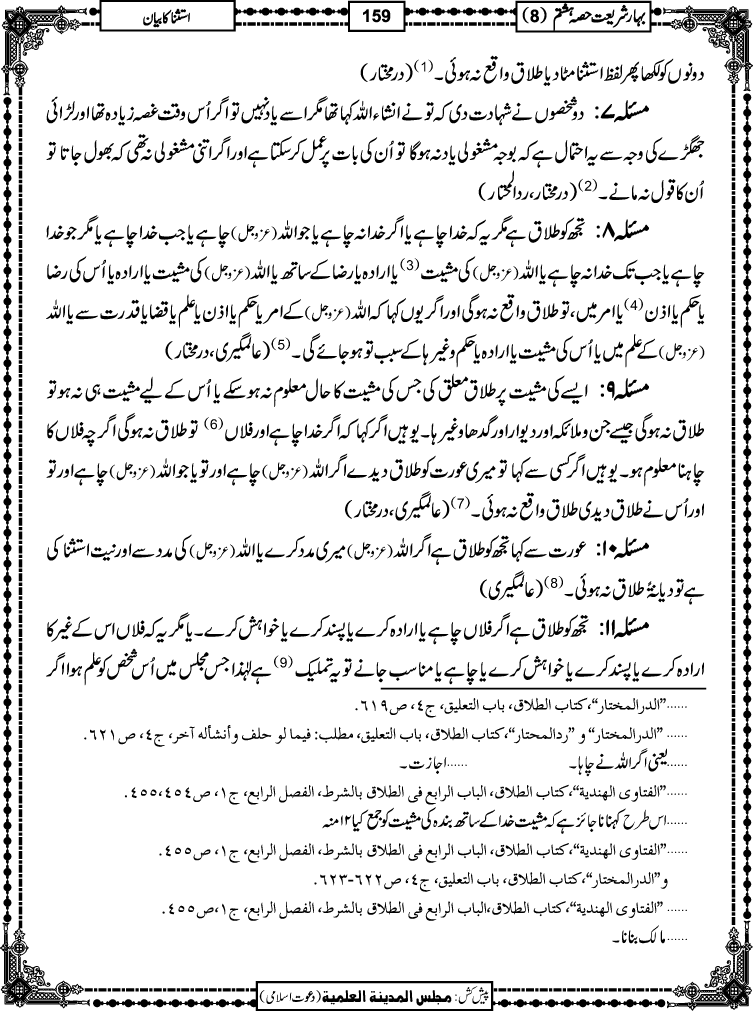 بہارِ شریعت حصہ ہشتم (8)
159
استثنا کا بیان
دونوں کو لکھا پھر لفظ استثنا مٹا دیا طلاق واقع نہ ہوئی۔(1) (درمختار)
مسئلہ ۷: دو شخصوں نے شہادت دی کہ تو نے انشاء اللہ کہا تھا مگر اسے یاد نہیں تو اگر اُس وقت غصہ زیادہ تھا اور لڑائی
جھگڑے کی وجہ سے یہ احتمال ہے کہ بوجہ مشغولی یاد نہ ہوگا تو اُن کی بات پر عمل کر سکتا ہے اور اگر اتنی مشغولی نہ تھی کہ بھول جاتا تو
اُن کا قول نہ مانے۔(2) (درمختار، ردالمحتار)
مسئلہ ۸: تجھ کو طلاق ہے مگر یہ کہ خدا چاہے یا اگر خدا نہ چاہے یا جو اللہ (عزوجل) چاہے یا جب خدا چاہے یا مگر جو خدا
چاہے یا جب تک خدا نہ چاہے یا اللہ (عزوجل) کی مشیت (3) یا ارادہ یا رضا کے ساتھ یا اللہ (عزوجل) کی مشیت یا ارادہ یا اُس کی رضا
یا حکم یا اذن (4) یا امر میں، تو طلاق واقع نہ ہوگی اور اگر یوں کہا کہ اللہ (عزوجل) کے امر یا حکم یا اذن یا علم یا قضا یا قدرت سے یا اللہ
(عزوجل) کے علم میں یا اُس کی مشیت یا ارادہ یا حکم وغیرہا کے سبب تو ہو جائے گی۔(5) (عالمگیری، درمختار)
مسئلہ ۹: ایسے کی مشیت پر طلاق معلق کی جس کی مشیت کا حال معلوم نہ ہو سکے یا اُس کے لیے مشیت ہی نہ ہو تو
طلاق نہ ہوگی جیسے جن و ملائکہ اور دیوار اور گدھا وغیرہا۔ یوہیں اگر کہا کہ اگر خدا چاہے اور فلاں (6) تو طلاق نہ ہوگی اگرچہ فلاں کا
چاہنا معلوم ہو۔ یوہیں اگر کسی سے کہا تو میری عورت کو طلاق دیدے اگر اللہ (عزوجل) چاہے اور تو یا جو اللہ (عزوجل) چاہے اور تو
اور اُس نے طلاق دیدی طلاق واقع نہ ہوئی۔(7) (عالمگیری، درمختار)
مسئلہ ۱۰: عورت سے کہا تجھ کو طلاق ہے اگر اللہ (عزوجل) میری مدد کرے یا اللہ (عزوجل) کی مدد سے اور نیت استثنا کی
ہے تو دیانۃً طلاق نہ ہوئی۔(8) (عالمگیری)
مسئلہ ۱۱: تجھ کو طلاق ہے اگر فلاں چاہے یا ارادہ کرے یا پسند کرے یا خواہش کرے۔ یا مگر یہ کہ فلاں اس کے غیر کا
ارادہ کرے یا پسند کرے یا خواہش کرے یا چاہے یا مناسب جانے تو یہ تملیک (9) ہے لہٰذا جس مجلس میں اُس شخص کو علم ہوا اگر
......"الدرالمختار"، كتاب الطلاق، باب التعليق، ج٤، ص٦١٩.
...... "الدرالمختار" و "ردالمحتار"، كتاب الطلاق، باب التعليق، مطلب: فيما لو حلف وأنشأله آخر، ج٤، ص٦٢١.
......یعنی اگر اللہ نے چاہا۔ ......اجازت۔
......"الفتاوى الهندية"، كتاب الطلاق، الباب الرابع فى الطلاق بالشرط، الفصل الرابع، ج١، ص٤٥٤،٤٥٥.
......اس طرح کہنا ناجائز ہے کہ مشیت خدا کے ساتھ بندہ کی مشیت کو جمع کیا ۱۲ منہ
......"الفتاوى الهندية"، كتاب الطلاق، الباب الرابع فى الطلاق بالشرط، الفصل الرابع، ج١، ص٤٥٥.
و"الدرالمختار"، كتاب الطلاق، باب التعليق، ج٤، ص٦٢٢-٦٢٣.
...... "الفتاوى الهندية"، كتاب الطلاق، الباب الرابع فى الطلاق بالشرط، الفصل الرابع، ج١، ص٤٥٥.
......مالک بنانا۔
پیش کش: مجلس المدينة العلمية (دعوت اسلامی)